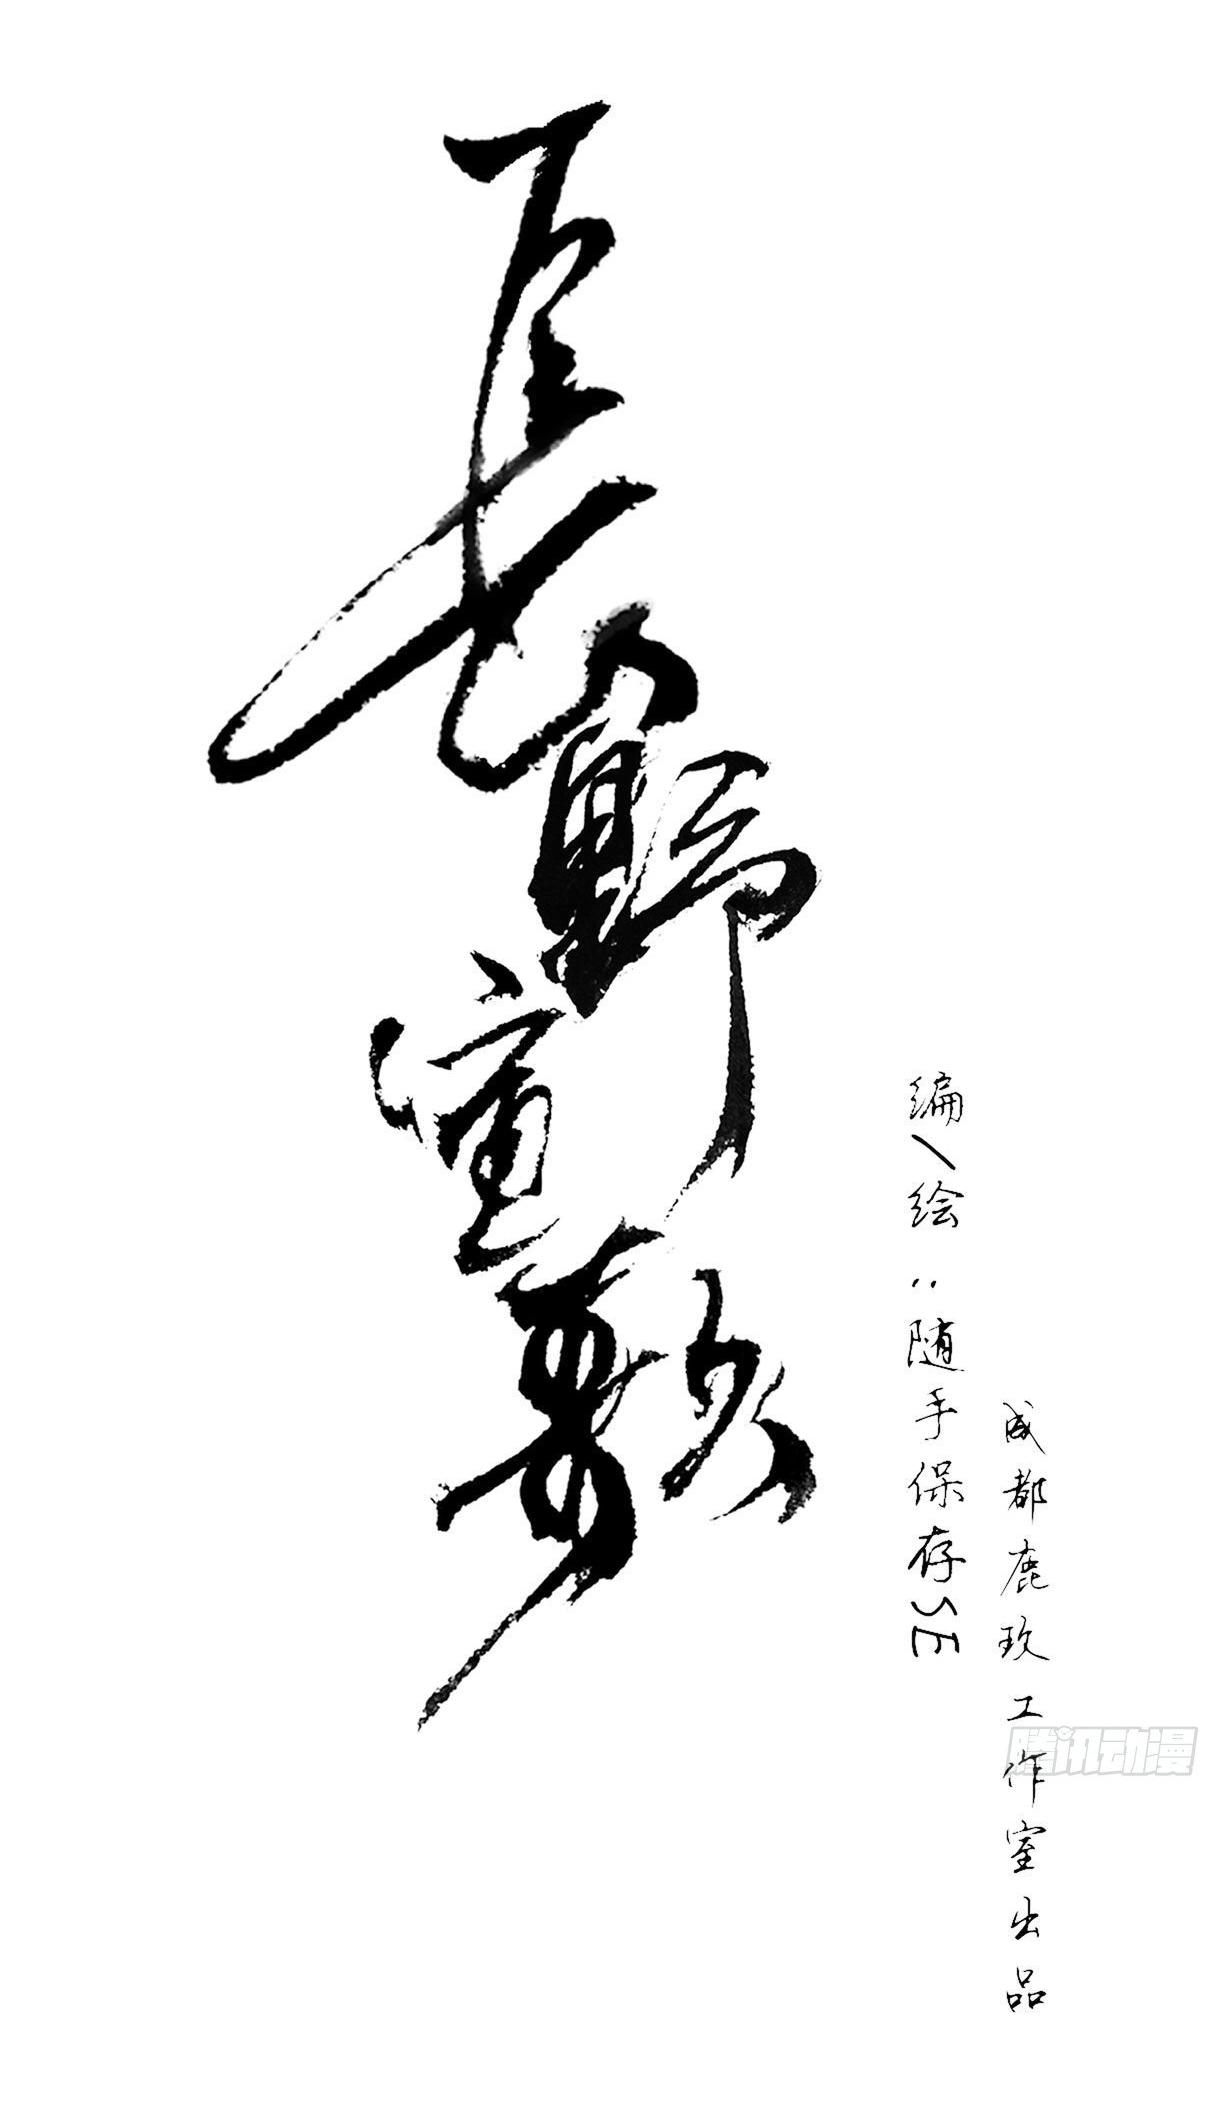 長野寔敷
编/绘：随手保存SE
成都鹿玖工作室出品
腾讯动漫